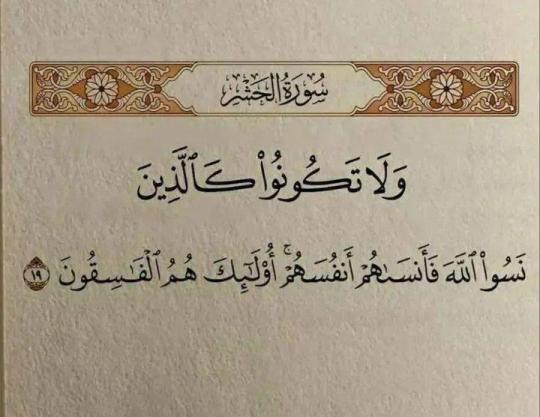 سُورَةُ الحَشْرِ
وَلَا تَكُونُوا۟ كَٱلَّذِينَ
نَسُوا۟ ٱللَّهَ فَأَنسَىٰهُمْ أَنفُسَهُمْ ۚ أُو۟لَـٰٓئِكَ هُمُ ٱلْفَـٰسِقُونَ ١٩